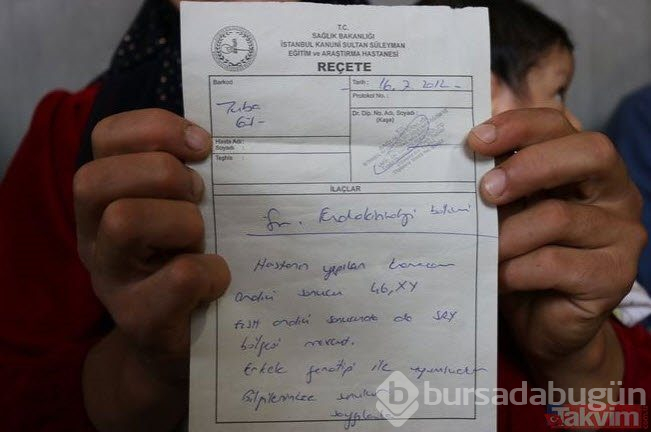 T.C.
SAĞLIK BAKANLIĞI
İSTANBUL KANUNİ SULTAN SÜLEYMAN
EĞİTİM ve ARAŞTIRMA HASTANESİ
REÇETE
Barkod
Tuba
Gül-
Hasta Adı :
Soyadı :
Teşhis
Tarih : 16.7.2012-
Protokol No. :
Dr. Dip. No. Adı, Soyadı :
(Kaşe)
İLAÇLAR
Endokrinoloji bölümü
Hastanın yapılan kromozom
analizi sonucu 46,XY
FISH analizi sonucunda da SRY
bölgesi mevcut.
Erkek fenotipi ile uyumludur
Bilgilerinize sunulur
saygılarımla
bursadabugün
Takvim